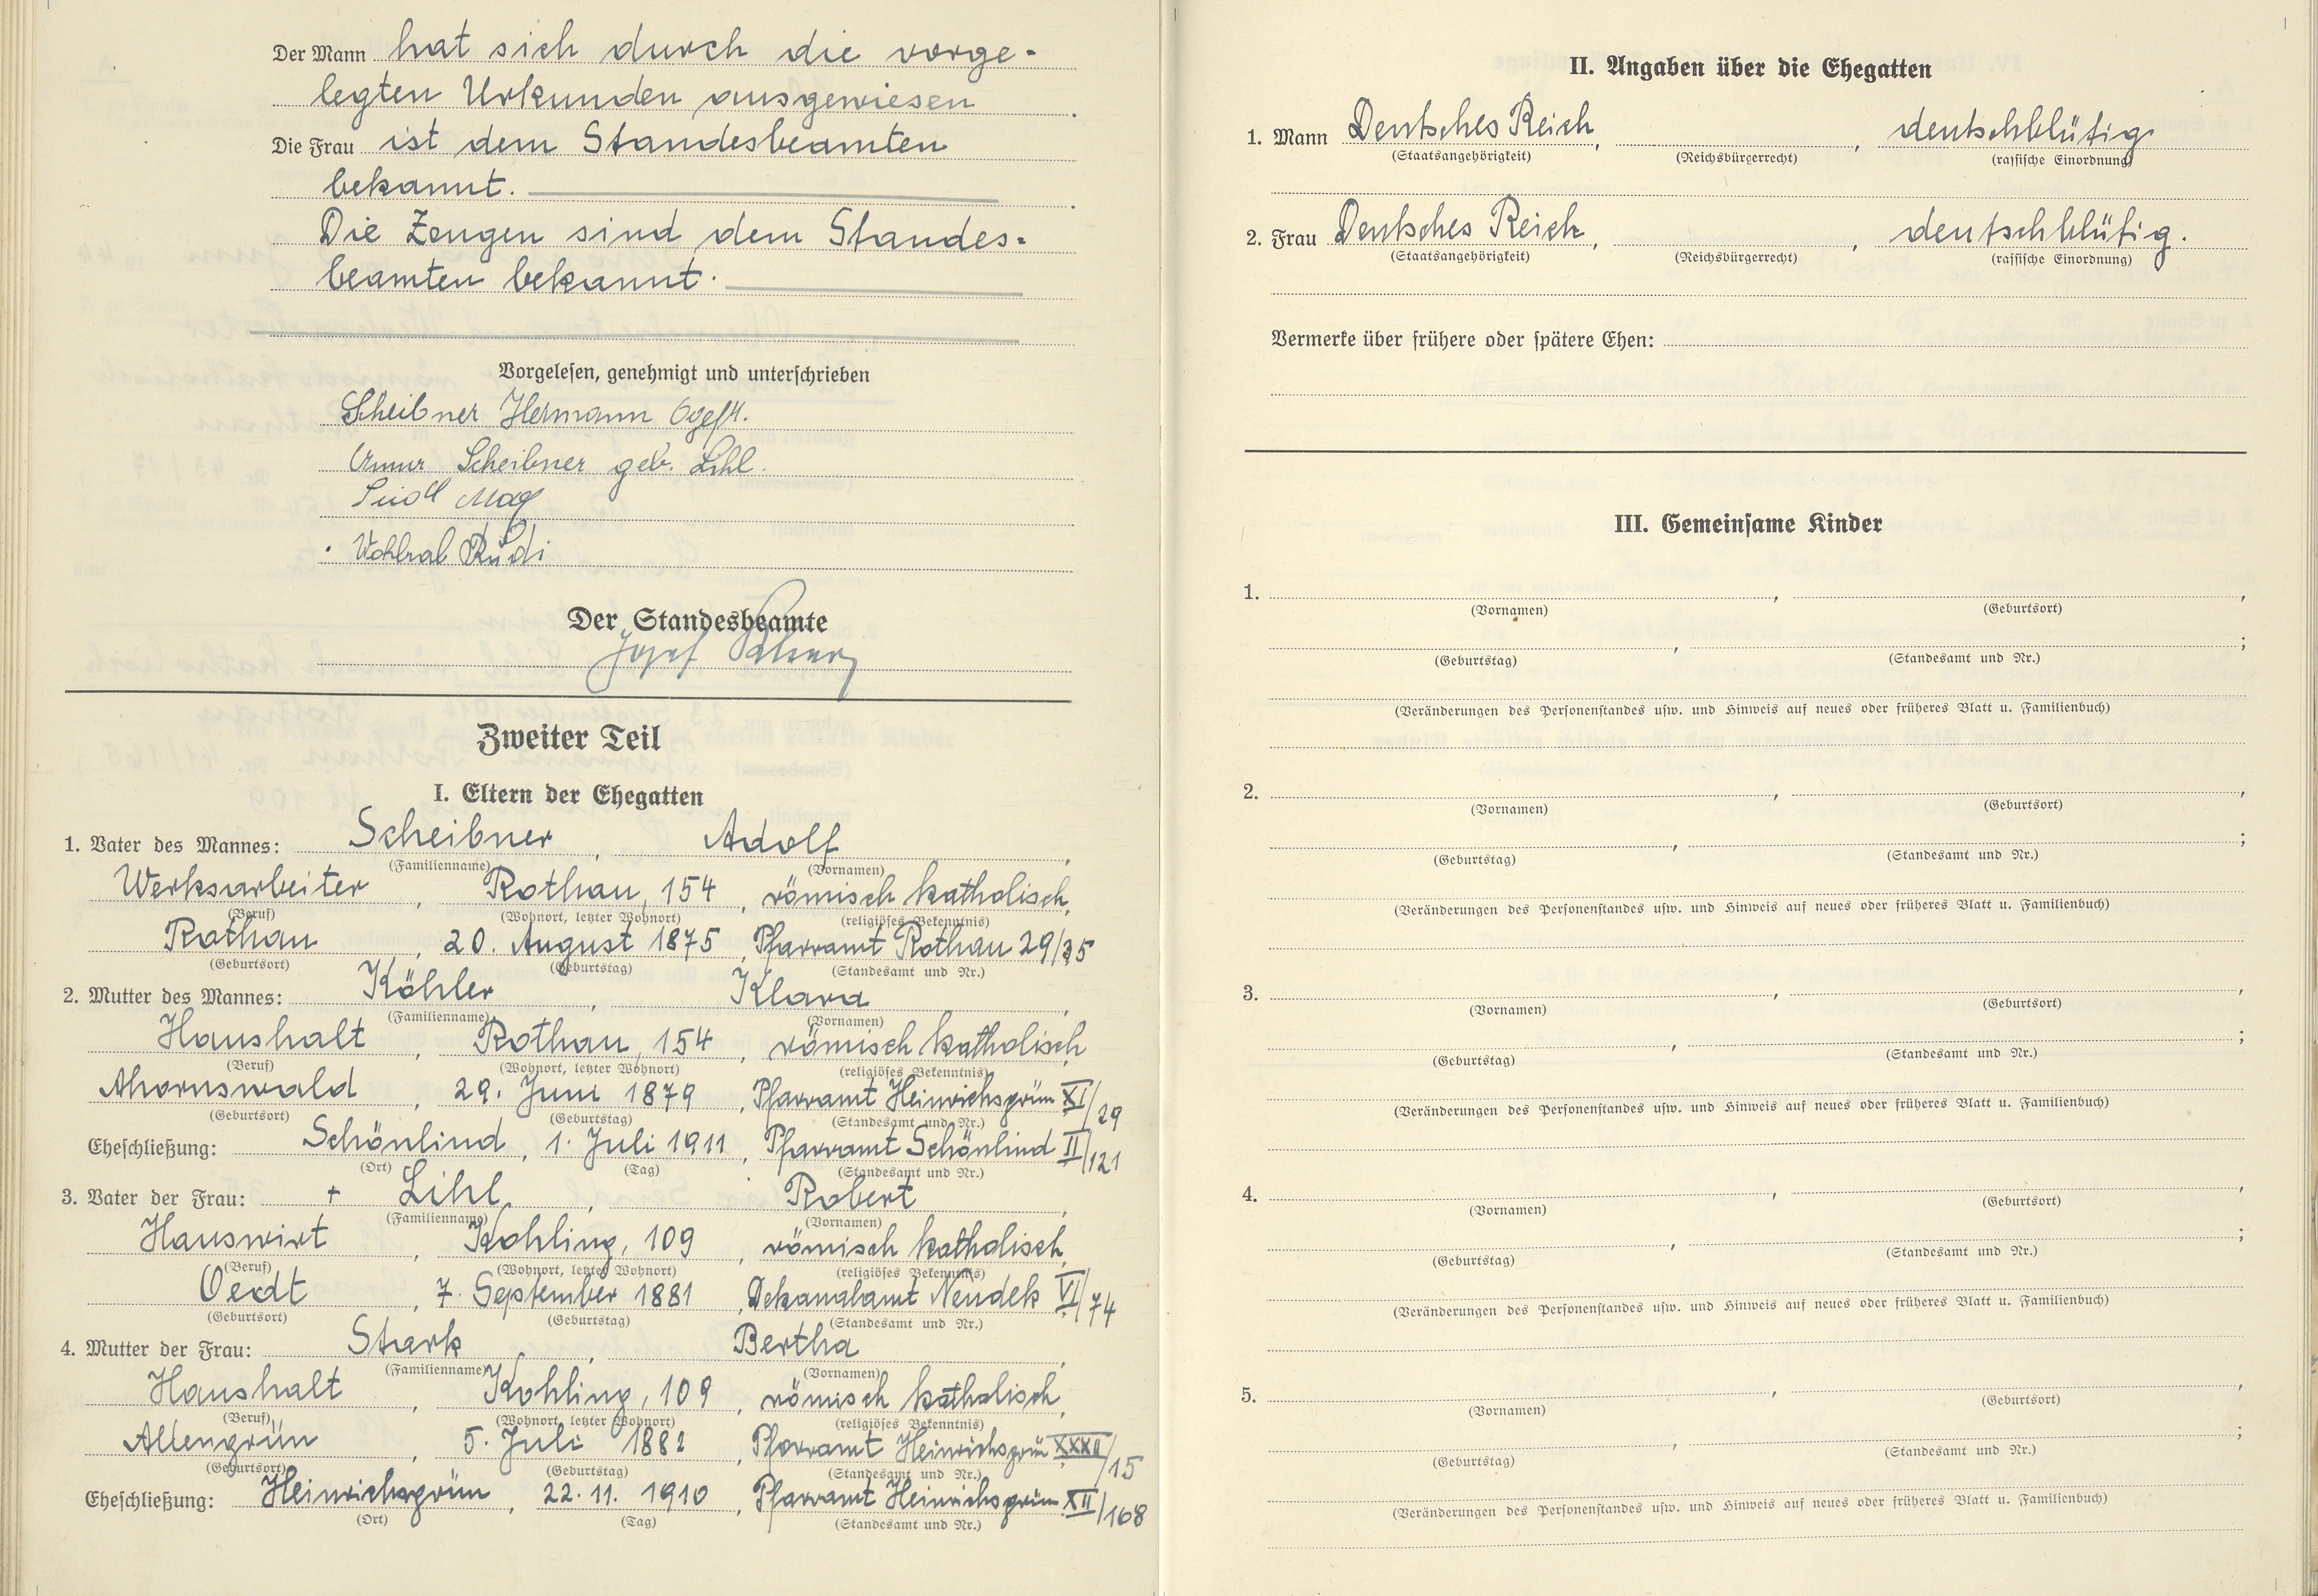 Der Mann hat sich durch die vorge-
legten Urkunden ausgewiesen .
Die Frau ist dem Standesbeamten
bekannt. .
Die Zeugen sind dem Standes-
beamten bekannt.
Vorgelesen, genehmigt und unterschrieben
Scheibner Hermann Ogefr.
Scheibner geb. Lihl.
Rudi
Der Standesbeamte
Josef
Zweiter Teil
I. Eltern der Ehegatten
1. Vater des Mannes: Scheibner , Adolf ,
(Familienname) (Vornamen)
Werksarbeiter , Rothau, 154 , römisch katholisch,
(Beruf) (Wohnort, letzter Wohnort) (religiöses Bekenntnis)
Rothau , 20. August 1875 , Pfarramt Rothau 29/35
(Geburtsort) (Geburtstag) (Standesamt und Nr.)
2. Mutter des Mannes: Köhler , Klara ,
(Familienname) (Vornamen)
Haushalt , Rothau, 154 , römisch katholisch,
(Beruf) (Wohnort, letzter Wohnort) (religiöses Bekenntnis)
Ahornswald , 29. Juni 1879 , Pfarramt Heinrichsgrün XI/29
(Geburtsort) (Geburtstag) (Standesamt und Nr.)
Eheschließung: Schönlind , 1. Juli 1911 , Pfarramt Schönlind II/121
(Ort) (Tag) (Standesamt und Nr.)
3. Vater der Frau: + Lihl , Robert ,
(Familienname) (Vornamen)
Hauswirt , Kohling, 109 , römisch katholisch,
(Beruf) (Wohnort, letzter Wohnort) (religiöses Bekenntnis)
Oedt , 7. September 1881 , Dekanalamt Neudek VI/74
(Geburtsort) (Geburtstag) (Standesamt und Nr.)
4. Mutter der Frau: Stark , Bertha ,
(Familienname) (Vornamen)
Haushalt , Kohling, 109 , römisch katholisch,
(Beruf) (Wohnort, letzter Wohnort) (religiöses Bekenntnis)
Altengrün , 5. Juli 1882 , Pfarramt Heinrichsgrün XXXII/15
(Geburtsort) (Geburtstag) (Standesamt und Nr.)
Eheschließung: Heinrichsgrün , 22. 11. 1910 , Pfarramt Heinrichsgrün XII/168
(Ort) (Tag) (Standesamt und Nr.)
II. Angaben über die Ehegatten
1. Mann Deutsches Reich , , deutschblütig
(Staatsangehörigkeit) (Reichsbürgerrecht) (rassische Einordnung)
2. Frau Deutsches Reich , , deutschblütig.
(Staatsangehörigkeit) (Reichsbürgerrecht) (rassische Einordnung)
Vermerke über frühere oder spätere Ehen:
III. Gemeinsame Kinder
1. , ,
(Vornamen) (Geburtsort)
, ;
(Geburtstag) (Standesamt und Nr.)
(Veränderungen des Personenstandes usw. und Hinweis auf neues oder früheres Blatt u. Familienbuch)
2. , ,
(Vornamen) (Geburtsort)
, ;
(Geburtstag) (Standesamt und Nr.)
(Veränderungen des Personenstandes usw. und Hinweis auf neues oder früheres Blatt u. Familienbuch)
3. , ,
(Vornamen) (Geburtsort)
, ;
(Geburtstag) (Standesamt und Nr.)
(Veränderungen des Personenstandes usw. und Hinweis auf neues oder früheres Blatt u. Familienbuch)
4. , ,
(Vornamen) (Geburtsort)
, ;
(Geburtstag) (Standesamt und Nr.)
(Veränderungen des Personenstandes usw. und Hinweis auf neues oder früheres Blatt u. Familienbuch)
5. , ,
(Vornamen) (Geburtsort)
, ;
(Geburtstag) (Standesamt und Nr.)
(Veränderungen des Personenstandes usw. und Hinweis auf neues oder früheres Blatt u. Familienbuch)